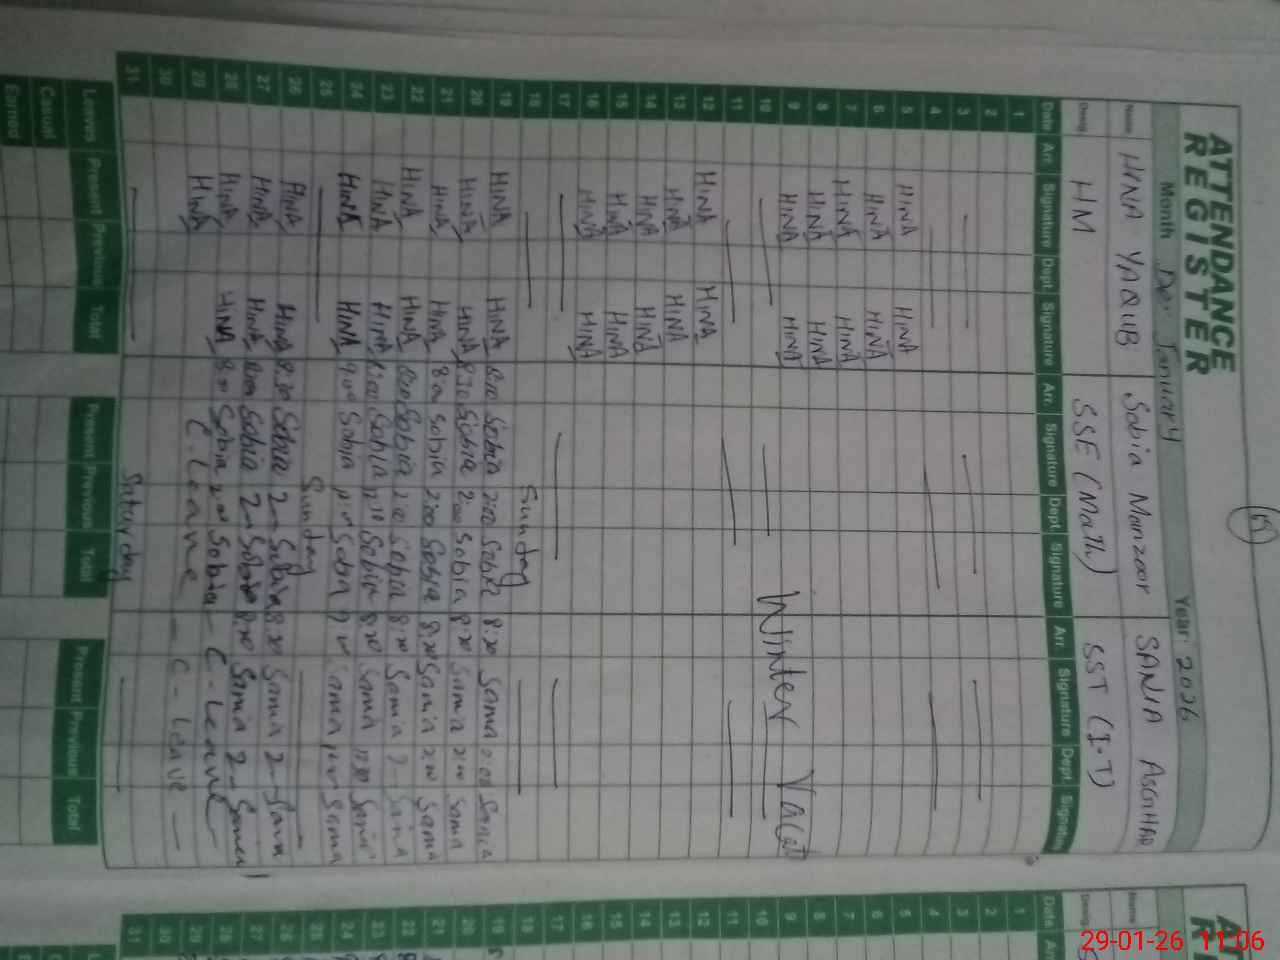 65
ATTENDANCE
REGISTER
Month Dec January Year: 2026
Name HINA YAQUB Sobia Manzoor SANIA ASGHAR
Desig. HM SSE (Math) SST (I.T)
Date Arr. Signature Dept. Signature Arr. Signature Dept. Signature Arr. Signature Dept. Signature
1
2
3
4
5 HINA HINA
6 HINA HINA
7 HINA HINA
8 HINA HINA
9 HINA HINA Winter Vacat
10
11
12 HINA HINA
13 HINA HINA
14 HINA HINA
15 HINA HINA
16 HINA HINA
17
18 Sunday
19 HINA HINA Sobia 2:00 8:30 Sania
20 HINA HINA 8:30 Sobia 2:00 Sobia 8:30 Sania 2:00 Sania
21 HINA HINA 8:00 Sobia 2:00 Sobia 8:30 Sania 2:00 Sania
22 HINA HINA Sobia 2:00 Sobia 8:30 Sania Sania
23 HINA HINA Sobia 12:30 Sobia 8:30 Sania 12:30 Sania
24 HINA HINA 9:00 Sobia Sobia Sania Sania
25 Sunday
26 HINA HINA 8:30 Sobia 2 Sobia 8:30 Sania 2 Sania
27 HINA HINA Sobia 2 Sobia 8:30 Sania 2 Sania
28 HINA HINA Sobia 2:00 Sobia C-Leave
29 HINA C.Leave C-Leave
30
31 Saturday
Leaves Present Previous Total Present Previous Total Present Previous Total
Casual
Earned
AT
R
Date
Name
Desig.
1
2
3
4
5
6
7
8
9
10
11
12
13
14
15
16
17
18
19
20
21
22
23
24
25
26
27
28
29
30
31
29-01-26 11:06